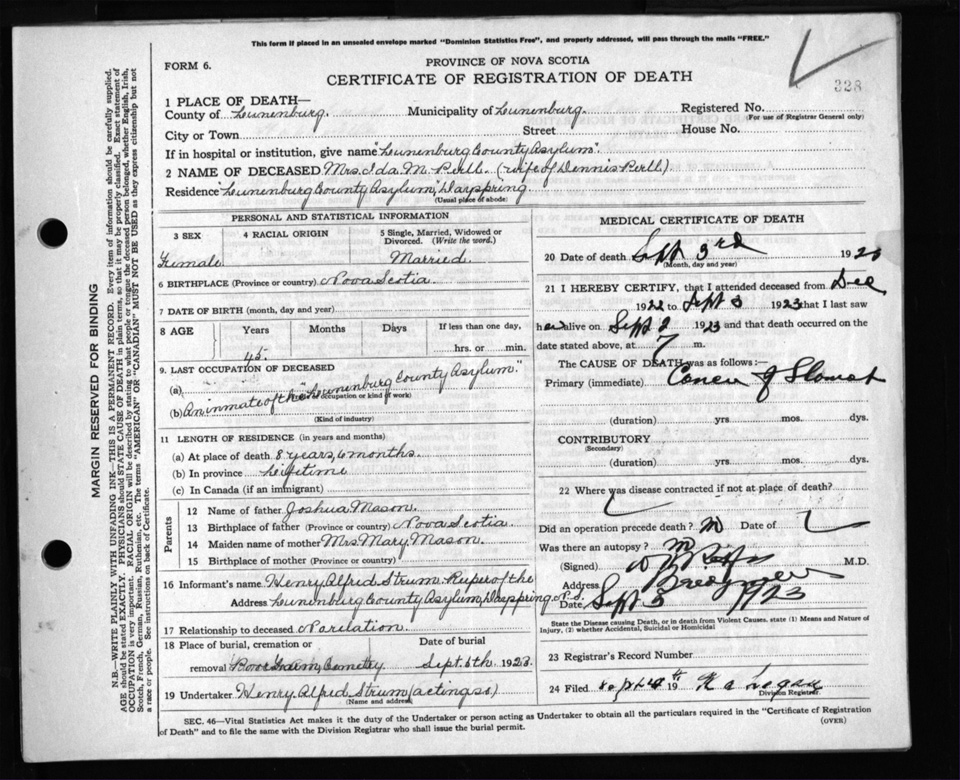 This form if placed in an unsealed envelope marked "Dominion Statistics Free", and properly addressed, will pass through the mails "FREE."
FORM 6.
PROVINCE OF NOVA SCOTIA
CERTIFICATE OF REGISTRATION OF DEATH
328
1 PLACE OF DEATH—
County of Lunenburg. Municipality of Lunenburg. Registered No.
(For use of Registrar General only)
City or Town Street House No.
If in hospital or institution, give name "Lunenburg County Asylum"
2 NAME OF DECEASED Mrs. Ida. M. (wife of Dennis
Residence "Lunenburg County Asylum", Dayspring.
(Usual place of abode)
PERSONAL AND STATISTICAL INFORMATION
3 SEX 4 RACIAL ORIGIN 5 Single, Married, Widowed or Divorced. (Write the word.)
Female Married.
6 BIRTHPLACE (Province or country) Nova Scotia.
7 DATE OF BIRTH (month, day and year)
8 AGE Years Months Days If less than one day,
45. hrs. or min.
9. LAST OCCUPATION OF DECEASED
(a) (occupation or kind of work)
(b) An inmate of the "Lunenburg County Asylum."
(Kind of industry)
11 LENGTH OF RESIDENCE (in years and months)
(a) At place of death 8 years, 6 months.
(b) In province Lifetime
(c) In Canada (if an immigrant)
Parents
12 Name of father Joshua Mason.
13 Birthplace of father (Province or country) Nova Scotia.
14 Maiden name of mother Mrs. Mary. Mason.
15 Birthplace of mother (Province or country)
16 Informant's name Henry Alfred Strum. of the
Address Lunenburg County Asylum, Dayspring, N.S.
17 Relationship to deceased No relation.
18 Place of burial, cremation or removal Date of burial
Poor Cemetery Sept. 5th. 1923.
19 Undertaker Henry. Alfred Strum (acting as)
(Name and address)
MEDICAL CERTIFICATE OF DEATH
20 Date of death Sept 3rd 1923
(Month, day and year)
21 I HEREBY CERTIFY, that I attended deceased from Dec
1922 to Sept 3 1923 that I last saw
her alive on Sept 2 1923 and that death occurred on the
date stated above, at 7 m.
The CAUSE OF DEATH was as follows:—
Primary (immediate) Cancer of Stomach
(duration) yrs. mos. dys.
CONTRIBUTORY
(Secondary)
(duration) yrs. mos. dys.
22 Where was disease contracted if not at place of death?
Did an operation precede death? no Date of
Was there an autopsy? no
(Signed) M.D.
Address Bridgewater
Date, Sept 5 1923
State the Disease causing Death, or in death from Violent Causes, state (1) Means and Nature of Injury, (2) whether Accidental, Suicidal or Homicidal
23 Registrar's Record Number
24 Filed 19
Division Registrar.
SEC. 46—Vital Statistics Act makes it the duty of the Undertaker or person acting as Undertaker to obtain all the particulars required in the "Certificate of Registration
of Death" and to file the same with the Division Registrar who shall issue the burial permit. (OVER)
MARGIN RESERVED FOR BINDING
N.B.—WRITE PLAINLY WITH UNFADING INK—THIS IS A PERMANENT RECORD. Every item of information should be carefully supplied.
AGE should be stated EXACTLY. PHYSICIANS should STATE CAUSE OF DEATH in plain terms, so that it may be properly classified. Exact statement of
OCCUPATION is very important. RACIAL ORIGIN will be described by stating to what people or tongue the deceased person belonged, whether English, Irish,
Scotch, French, German, Russian, Ruthenian, etc. The terms "AMERICAN" OR "CANADIAN" MUST NOT BE USED as they express citizenship but not
a race or people. See instructions on back of Certificate.